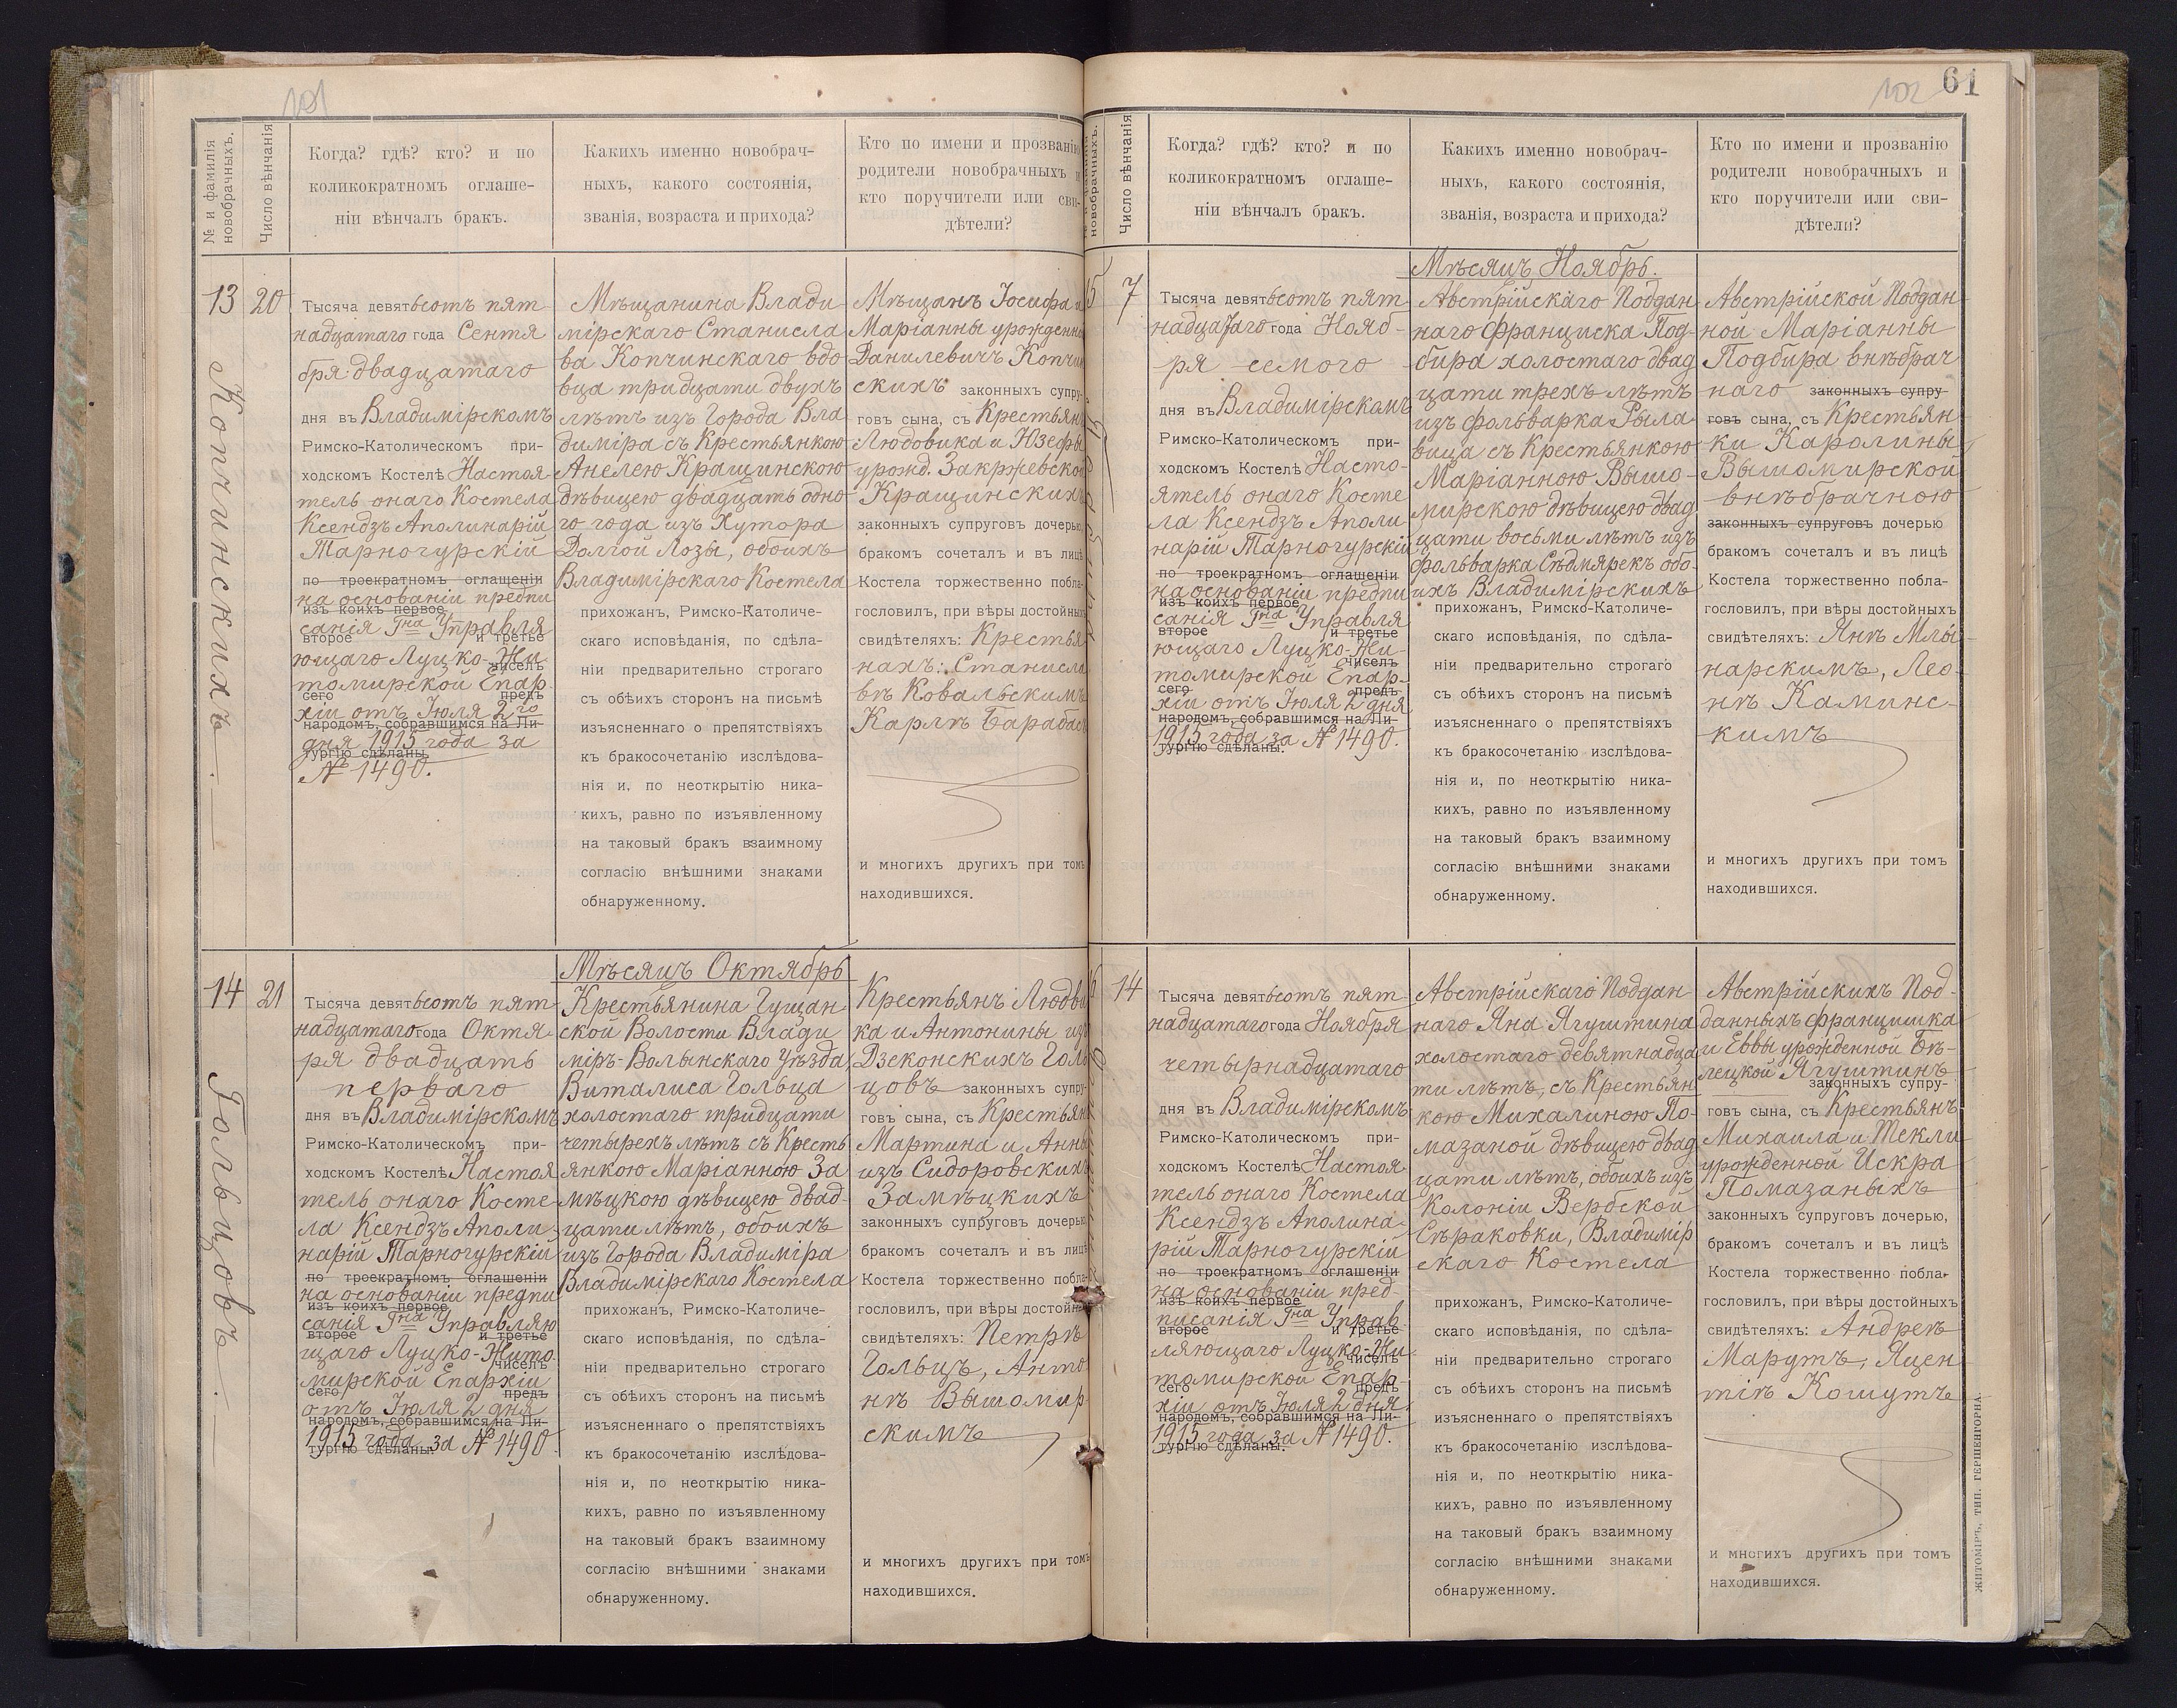 101
№ и фамилія новобрачныхъ.
Число вѣнчанія
Когда? гдѣ? кто? и по
коликократномъ оглаше-
ніи вѣнчалъ бракъ.
Какихъ именно новобрач-
ныхъ, какого состоянія,
званія, возраста и прихода?
Кто по имени и прозванію
родители новобрачныхъ и
кто поручители или сви-
дѣтели?
13
20
Копчинскихъ.
Тысяча девятьсотъ пят
надцатаго года Сентя
бря двадцатаго
дня въ Владимірскомъ
Римско-Католическомъ при-
ходскомъ Костелѣ Настоя
тель онаго Костела
Ксендзъ Аполинарій
Тарногурскій
по троекратномъ оглашеніи
на основаніи предпи
изъ коихъ первое
санія Гна Управля
второе и третье
ющаго Луцко-Жи
чиселъ
томирской Епар
сего предъ
хіи отъ Іюля 2го
народомъ, собравшимся на Ли-
дня 1915 года за
тургію сдѣланы
№ 1490.
Мѣщанина Влади
мірскаго Станисла
ва Копчинскаго вдо
вца тридцати двухъ
лѣтъ изъ Города Вла
диміра съ Крестьянкою
Анелею Кращинскою
дѣвицею двадцать одно
го года изъ Хутора
Долгой Лозы, обоихъ
Владимірскаго Костела
прихожанъ, Римско-Католиче-
скаго исповѣданія, по сдѣла-
ніи предварительно строгаго
съ обѣихъ сторонъ на письмѣ
изъясненнаго о препятствіяхъ
къ бракосочетанію изслѣдова-
нія и, по неоткрытію ника-
кихъ, равно по изъявленному
на таковый бракъ взаимному
согласію внѣшними знаками
обнаруженному.
Мѣщанъ Іосифа и
Маріанны урожденной
Данилевичъ Копчин
скихъ законныхъ супру-
говъ сына, съ Крестьянъ
Людовика и Юзефы
урожд. Закржевской
Кращинскихъ
законныхъ супруговъ дочерью,
бракомъ сочеталъ и въ лицѣ
Костела торжественно побла-
гословилъ, при вѣры достойныхъ
свидѣтеляхъ: Крестья
нахъ: Станисла
вѣ Ковальскимъ
Карлѣ Барабаш
и многихъ другихъ при томъ
находившихся.
14
21
Гольцовъ.
Тысяча девятьсотъ пят
надцатаго года Октя
ря двадцать
перваго
дня въ Владимірскомъ
Римско-Католическомъ при-
ходскомъ Костелѣ Настоя
тель онаго Косте
ла Ксендзъ Аполи
нарій Тарногурскій
по троекратномъ оглашеніи
на основаніи предпи
изъ коихъ первое
санія Гна Управляю
второе и третье
щаго Луцко-Жито
чиселъ
мирской Епархіи
сего предъ
отъ Іюля 2 дня
народомъ, собравшимся на Ли-
1915 года за № 1490
тургію сдѣланы.
Мѣсяцъ Октябрь
Крестьянина Гущан
ской Волости Влади
міръ-Волынскаго Уѣзда,
Виталиса Гольца
холостаго тридцати
четырехъ лѣтъ съ Кресть
янкою Маріанною За
мѣцкою дѣвицею двад
цати лѣтъ, обоихъ
изъ Города Владиміра
Владимірскаго Костела
прихожанъ, Римско-Католиче-
скаго исповѣданія, по сдѣла-
ніи предварительно строгаго
съ обѣихъ сторонъ на письмѣ
изъясненнаго о препятствіяхъ
къ бракосочетанію изслѣдова-
нія и, по неоткрытію ника-
кихъ, равно по изъявленному
на таковый бракъ взаимному
согласію внѣшними знаками
обнаруженному.
Крестьянъ Людви
ка и Антонины изъ
Дзеконскихъ Голь
цовъ законныхъ супру-
говъ сына, съ Крестьян
Мартина и Анны
изъ Сидоровскихъ
Замѣцкихъ
законныхъ супруговъ дочерью
бракомъ сочеталъ и въ лицѣ
Костела торжественно побла-
гословилъ, при вѣры достойн
свидѣтеляхъ: Петрѣ
Гольцъ, Анто
нѣ Вышомир
скимъ
и многихъ другихъ при томъ
находившихся.
102
61
новобрачныхъ.
Число вѣнчанія
Когда? гдѣ? кто? и по
коликократномъ оглаше-
ніи вѣнчалъ бракъ.
Какихъ именно новобрач-
ныхъ, какого состоянія,
званія, возраста и прихода?
Кто по имени и прозванію
родители новобрачныхъ и
кто поручители или сви-
дѣтели?
7
Тысяча девятьсотъ пят
надцатаго года Нояб-
ря семого
дня въ Владимірскомъ
Римско-Католическомъ при-
ходскомъ Костелѣ Насто-
ятель онаго Косте
ла Ксендзъ Аполи
нарій Тарногурскій
по троекратномъ оглашеніи
на основаніи предпи
изъ коихъ первое
санія Гна Управля
второе и третье
ющаго Луцко-Жи-
чиселъ
томирской Епар-
сего предъ
хіи отъ Іюля 2 дня
народомъ, собравшимся на Ли-
1915 года за № 1490.
тургію сдѣланы.
Мѣсяцъ Ноябрь.
Австрійскаго Поддан
наго Франциска Под-
бира холостаго двад
цати трехъ лѣтъ
изъ фольварка Рыла
вица съ Крестьянкою
Маріанною Вышо-
мирскою дѣвицею двад
цати восьми лѣтъ изъ
фольварка Сѣдмярекъ обо-
ихъ Владимірскихъ
прихожанъ, Римско-Католиче-
скаго исповѣданія, по сдѣла-
ніи предварительно строгаго
съ обѣихъ сторонъ на письмѣ
изъясненнаго о препятствіяхъ
къ бракосочетанію изслѣдова-
нія и, по неоткрытію ника-
кихъ, равно по изъявленному
на таковый бракъ взаимному
согласію внѣшними знаками
обнаруженному.
Австрійской Поддан-
ной Маріанны
Подбира внѣбрач
наго законныхъ супру-
говъ сына, съ Крестьян-
ки Каролины
Вышомирской
внѣбрачною
законныхъ супруговъ дочерью
бракомъ сочеталъ и въ лицѣ
Костела торжественно побла-
гословилъ, при вѣры достойныхъ
свидѣтеляхъ: Янѣ Млы-
нарскимъ, Лео-
нѣ Каминс-
кимъ
и многихъ другихъ при томъ
находившихся.
14
Тысяча девятьсотъ пят
надцатаго года Ноября
четырнадцатаго
дня въ Владимірскомъ
Римско-Католическомъ при-
ходскомъ Костелѣ Настоя
тель онаго Костела
Ксендзъ Аполина-
рій Тарногурскій
по троекратномъ оглашеніи
на основаніи пред-
изъ коихъ первое
писанія Гна Управ
второе и третье
ляющаго Луцко-Жи
чиселъ
томирской Епар-
сего предъ
хіи отъ Іюля 2 дня
народомъ, собравшимся на Ли-
1915 года за № 1490.
тургію сдѣланы.
Австрійскаго Поддан
наго Яна Ягуштина
холостаго девятнадца
ти лѣтъ, съ Крестьян
кою Михалиною По-
мазаной дѣвицею двад
цати лѣтъ, обоихъ изъ
Колоніи Вербской
Сѣраковки, Владимір
скаго Костела
прихожанъ, Римско-Католиче-
скаго исповѣданія, по сдѣла-
ніи предварительно строгаго
съ обѣихъ сторонъ на письмѣ
изъясненнаго о препятствіяхъ
къ бракосочетанію изслѣдова-
нія и, по неоткрытію ника-
кихъ, равно по изъявленному
на таковый бракъ взаимному
согласію внѣшними знаками
обнаруженному.
Австрійскихъ Под-
данныхъ Францишка
и Еввы урожденной Бѣ-
лецкой Ягуштинъ
законныхъ супру-
говъ сына, съ Крестьянъ
Михаила и Текли
урожденной Искра
Помазаныхъ
законныхъ супруговъ дочерью,
бракомъ сочеталъ и въ лицѣ
Костела торжественно побла-
гословилъ, при вѣры достойныхъ
свидѣтеляхъ: Андреѣ
Марутъ, Яцен
тіѣ Кошутъ
и многихъ другихъ при томъ
находившихся.
ЖИТОМІРЪ, ТИП. ГЕРШЕНГОРНА